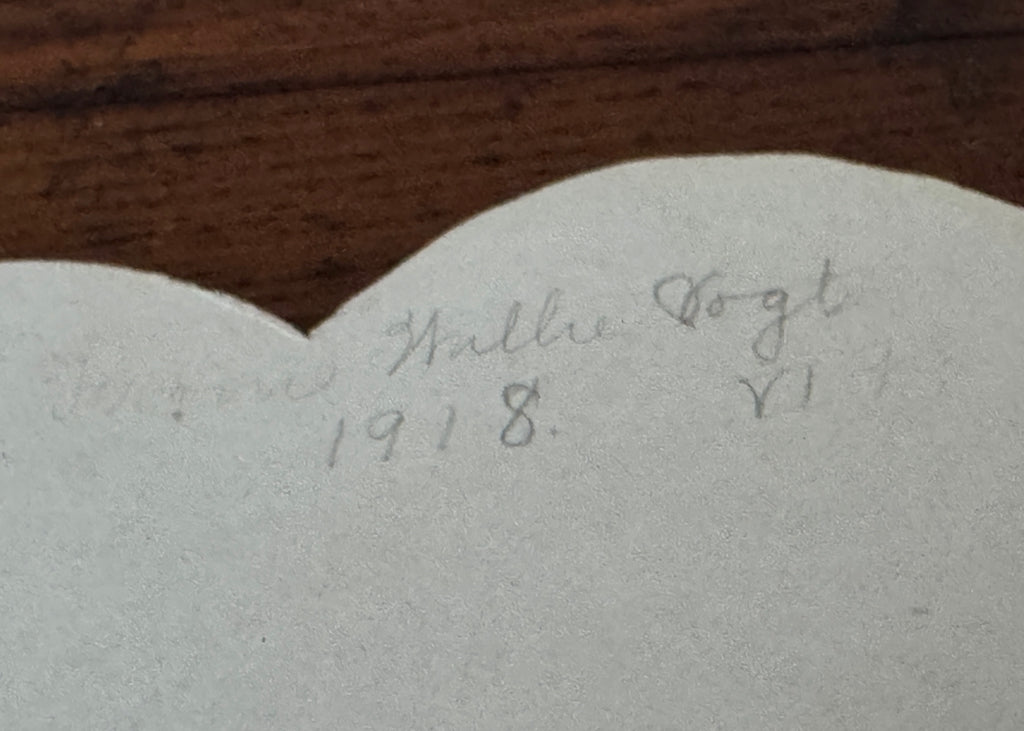 Hallie Vogt
1918. VI